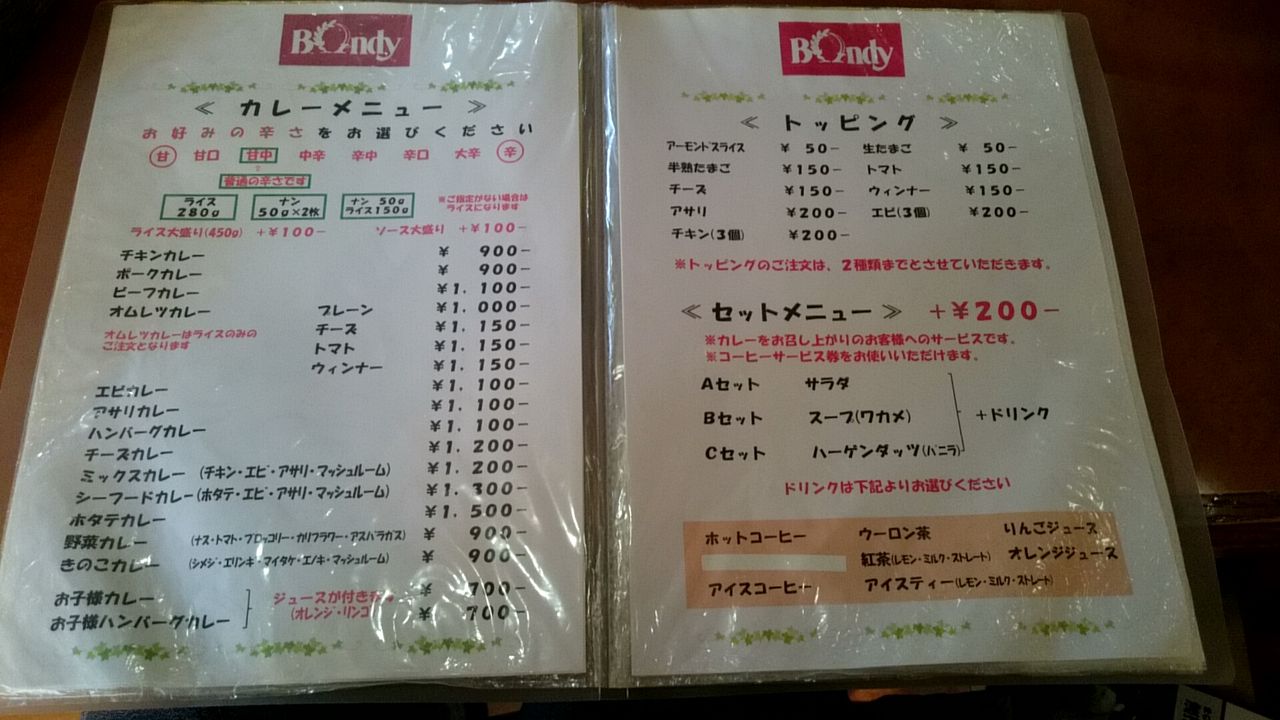 Bondy
≪ カレーメニュー ≫
お好みの辛さをお選びください
甘 甘口 甘中 中辛 辛中 辛口 大辛 辛
普通の辛さです
ライス 280g
ナン 50g×2枚
ナン 50g ライス150g
※ご指定がない場合は
ライスになります
ライス大盛り(450g) +¥100-
ソース大盛り +¥100-
チキンカレー ¥ 900-
ポークカレー ¥ 900-
ビーフカレー ¥1,100-
オムレツカレー プレーン ¥1,000-
チーズ ¥1,150-
トマト ¥1,150-
ウィンナー ¥1,150-
オムレツカレーはライスのみの
ご注文となります
エビカレー ¥1,100-
アサリカレー ¥1,100-
ハンバーグカレー ¥1,100-
チーズカレー ¥1,200-
ミックスカレー (チキン・エビ・アサリ・マッシュルーム) ¥1,200-
シーフードカレー(ホタテ・エビ・アサリ・マッシュルーム) ¥1,300-
ホタテカレー ¥1,500-
野菜カレー (ナス・トマト・ブロッコリー・カリフラワー・アスパラガス) ¥ 900-
きのこカレー (シメジ・エリンギ・マイタケ・エノキ・マッシュルーム) ¥ 900-
お子様カレー ¥ 700-
お子様ハンバーグカレー ¥ 700-
ジュースが付きます
(オレンジ・リンゴ)
Bondy
≪ トッピング ≫
アーモンドスライス ¥ 50- 生たまご ¥ 50-
半熟たまご ¥150- トマト ¥150-
チーズ ¥150- ウィンナー ¥150-
アサリ ¥200- エビ(3個) ¥200-
チキン(3個) ¥200-
※トッピングのご注文は、2種類までとさせていただきます。
≪ セットメニュー ≫ +¥200-
※カレーをお召し上がりのお客様へのサービスです。
※コーヒーサービス券をお使いいただけます。
Aセット サラダ
Bセット スープ(ワカメ) +ドリンク
Cセット ハーゲンダッツ(バニラ)
ドリンクは下記よりお選びください
ホットコーヒー ウーロン茶 りんごジュース
紅茶(レモン・ミルク・ストレート) オレンジジュース
アイスコーヒー アイスティー(レモン・ミルク・ストレート)